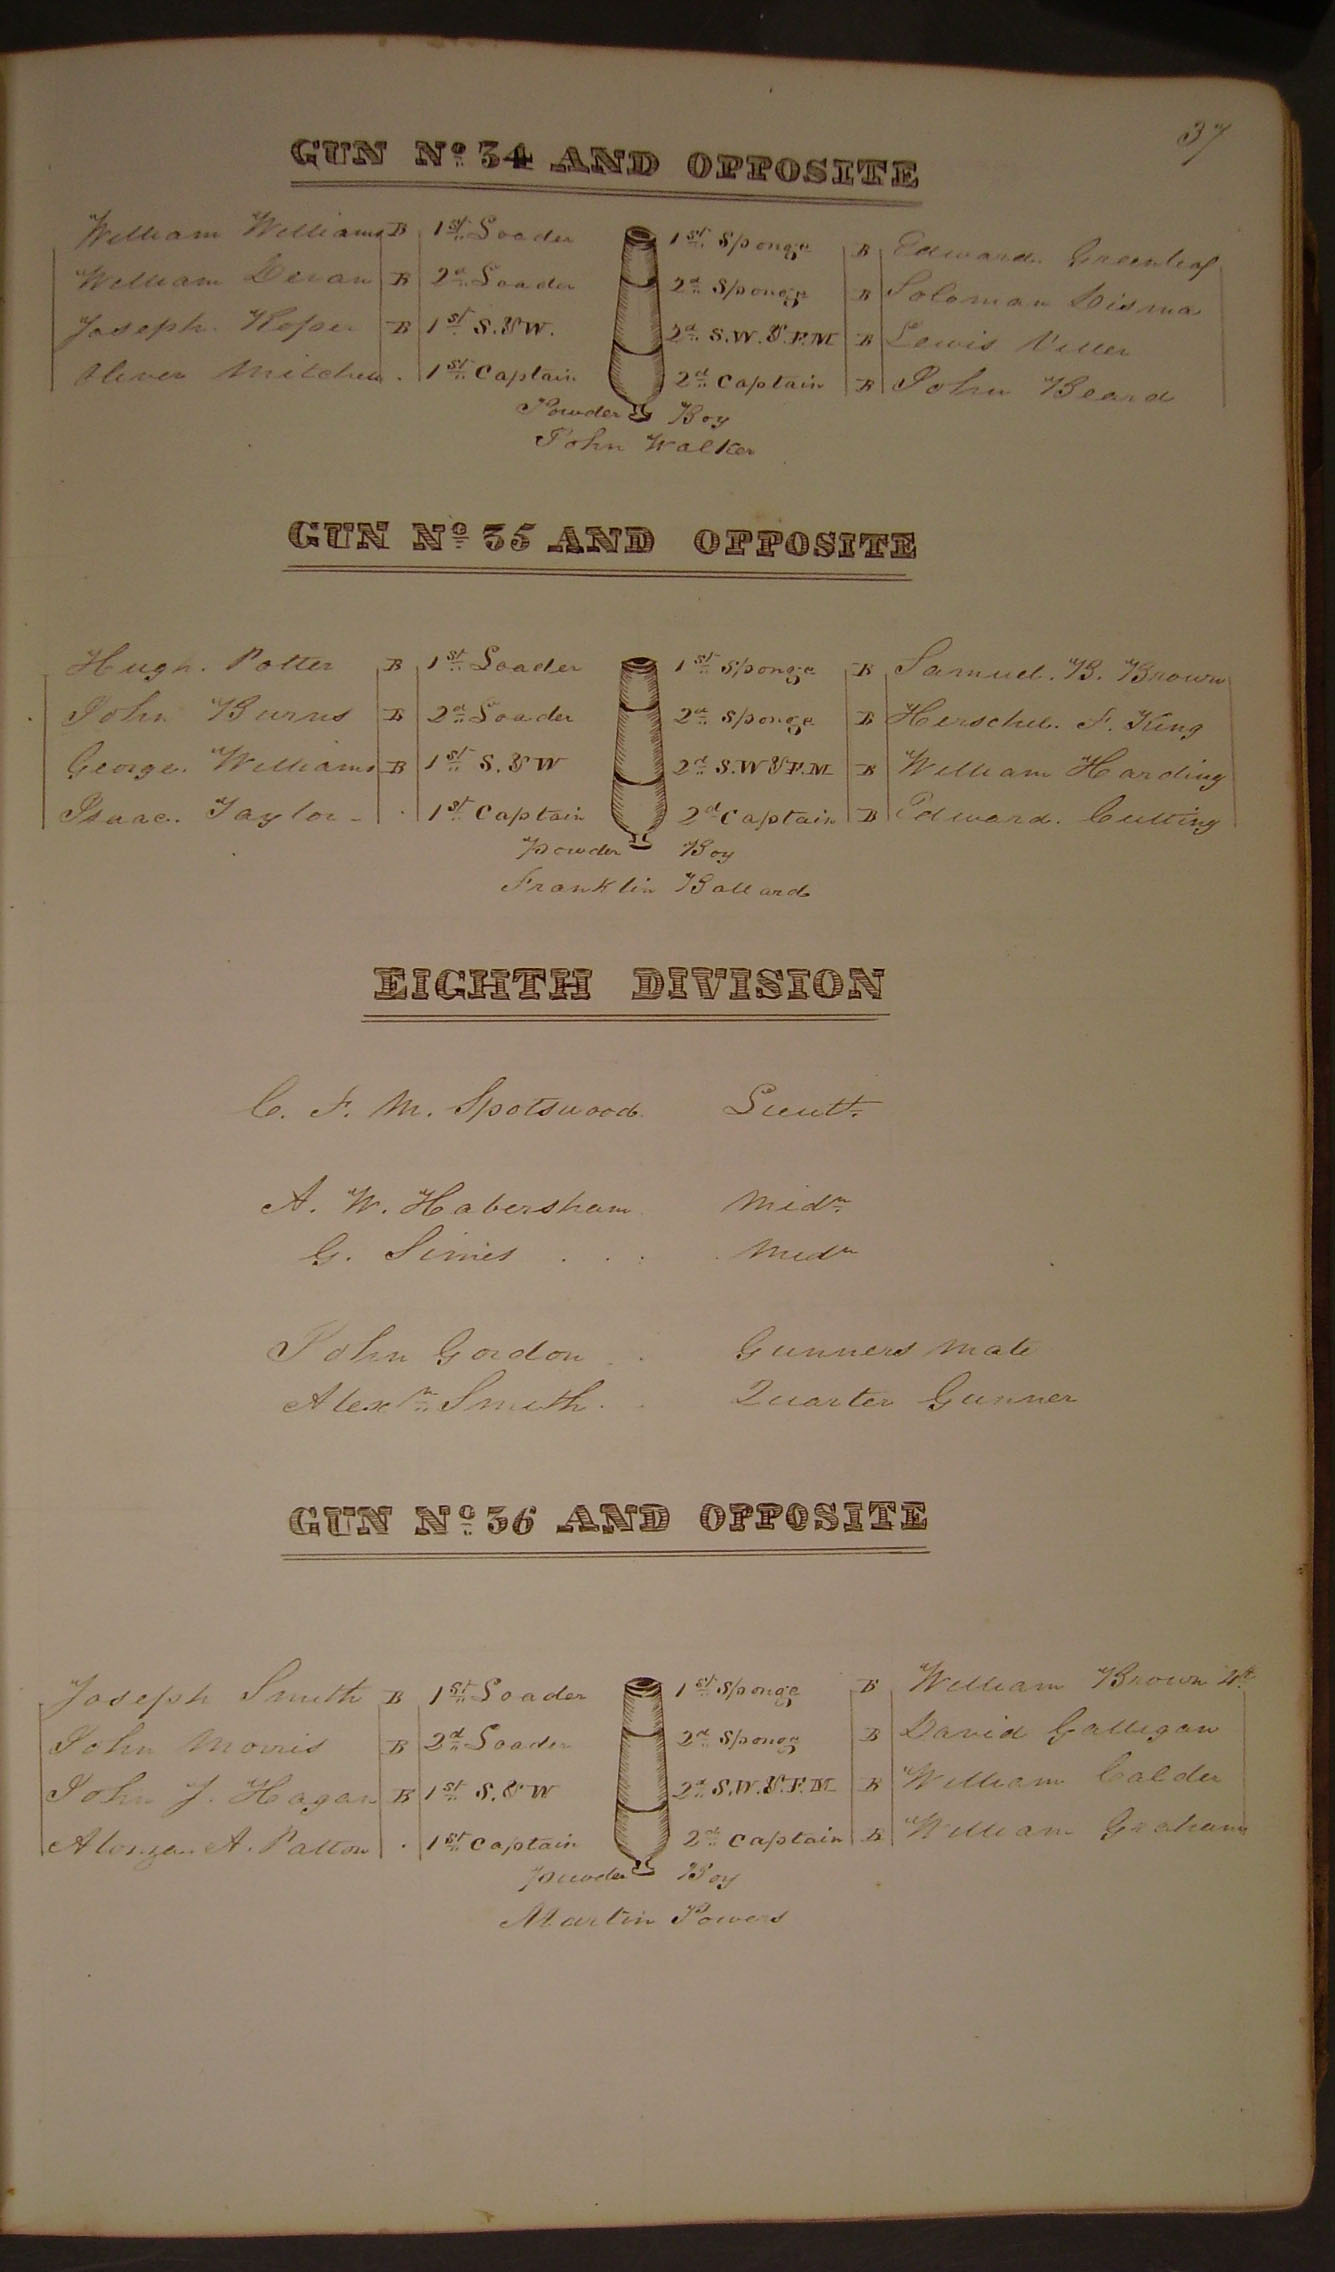 37
GUN No. 34 AND OPPOSITE
William Williams B 1st Loader 1st Sponge B Edward Greenleaf
William Devan B 2d Loader 2d Sponge B Soloman Disma
Joseph Roper B 1st S. & W. 2d S.W. & F.M B Lewis
Oliver Mitchell . 1st Captain 2d Captain B John Beard
Powder Boy
John Walker
GUN No. 35 AND OPPOSITE
Hugh. Potter B 1st Loader 1st Sponge B Samuel. B. Brown
John Burns B 2d Loader 2d Sponge B Herschel. F. King
George. Williams B 1st S. & W 2d S.W & F.M B William Harding
Isaac. Taylor - . 1st Captain 2d Captain B Edward. Cutting
Powder Boy
Franklin Ballard
EIGHTH DIVISION
C. F. M. Spotswood Lieutt.
A. W. Habersham Midn.
G. Simes . . . . Midn
John Gordon . . Gunners Mate
Alexr. Smith . . Quarter Gunner
GUN No. 36 AND OPPOSITE
Joseph Smith B 1st Loader 1st Sponge B William Brown 4th
John Morris B 2d Loader 2d Sponge B David Galligan
John J. Hagan B 1st S. & W 2d S.W. & F.M B William Calder
Alonzo. A. Patton . 1st Captain 2d Captain B William Graham
Powder Boy
Martin Powers